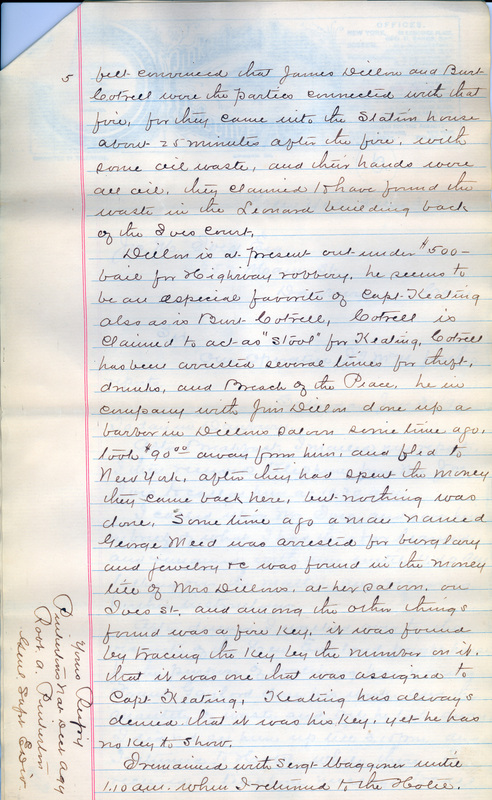 OFFICES.
5
felt convinced that James Dillon and Burt
Cotrell were the parties connected with that
fire, for they came into the Station house
about 25 minutes after the fire, with
some oil waste, and their hands were
all oil, they claimed to have found the
waste in the Leonard building back
of the Ives Court,
Dillon is at present out under $500-
bail for Highway robbery, he seems to
be an especial favorite of Capt. Keating
also as is Burt Cotrell, Cotrell is
claimed to act as "Stool" for Keating, Cotrell
has been arrested several times for theft,
drunks, and Breach of the Peace, he in
company with Jim Dillon done up a
barber in Dillons Saloon some time ago,
took $90.00 away from him, and fled to
New York, after they had spent the money
they came back here, but nothing was
done, Some time ago a man named
George Meed was arrested for burglary
and jewelry &c was found in the money
till of Mrs Dillons, at her Saloon, on
Ives St. and among the other things
found was a fire key, it was found
by tracing the key by the number on it,
that it was one that was assigned to
Capt Keating, Keating has always
denied that it was his key, yet he has
no key to show.
I remained with Sergt Waggoner until
1:10 a.m. when I returned to the Hotel.
Yours Respy
Pinkertons Nat Det Agy
Robt A. Pinkerton
Genl Supt E Div